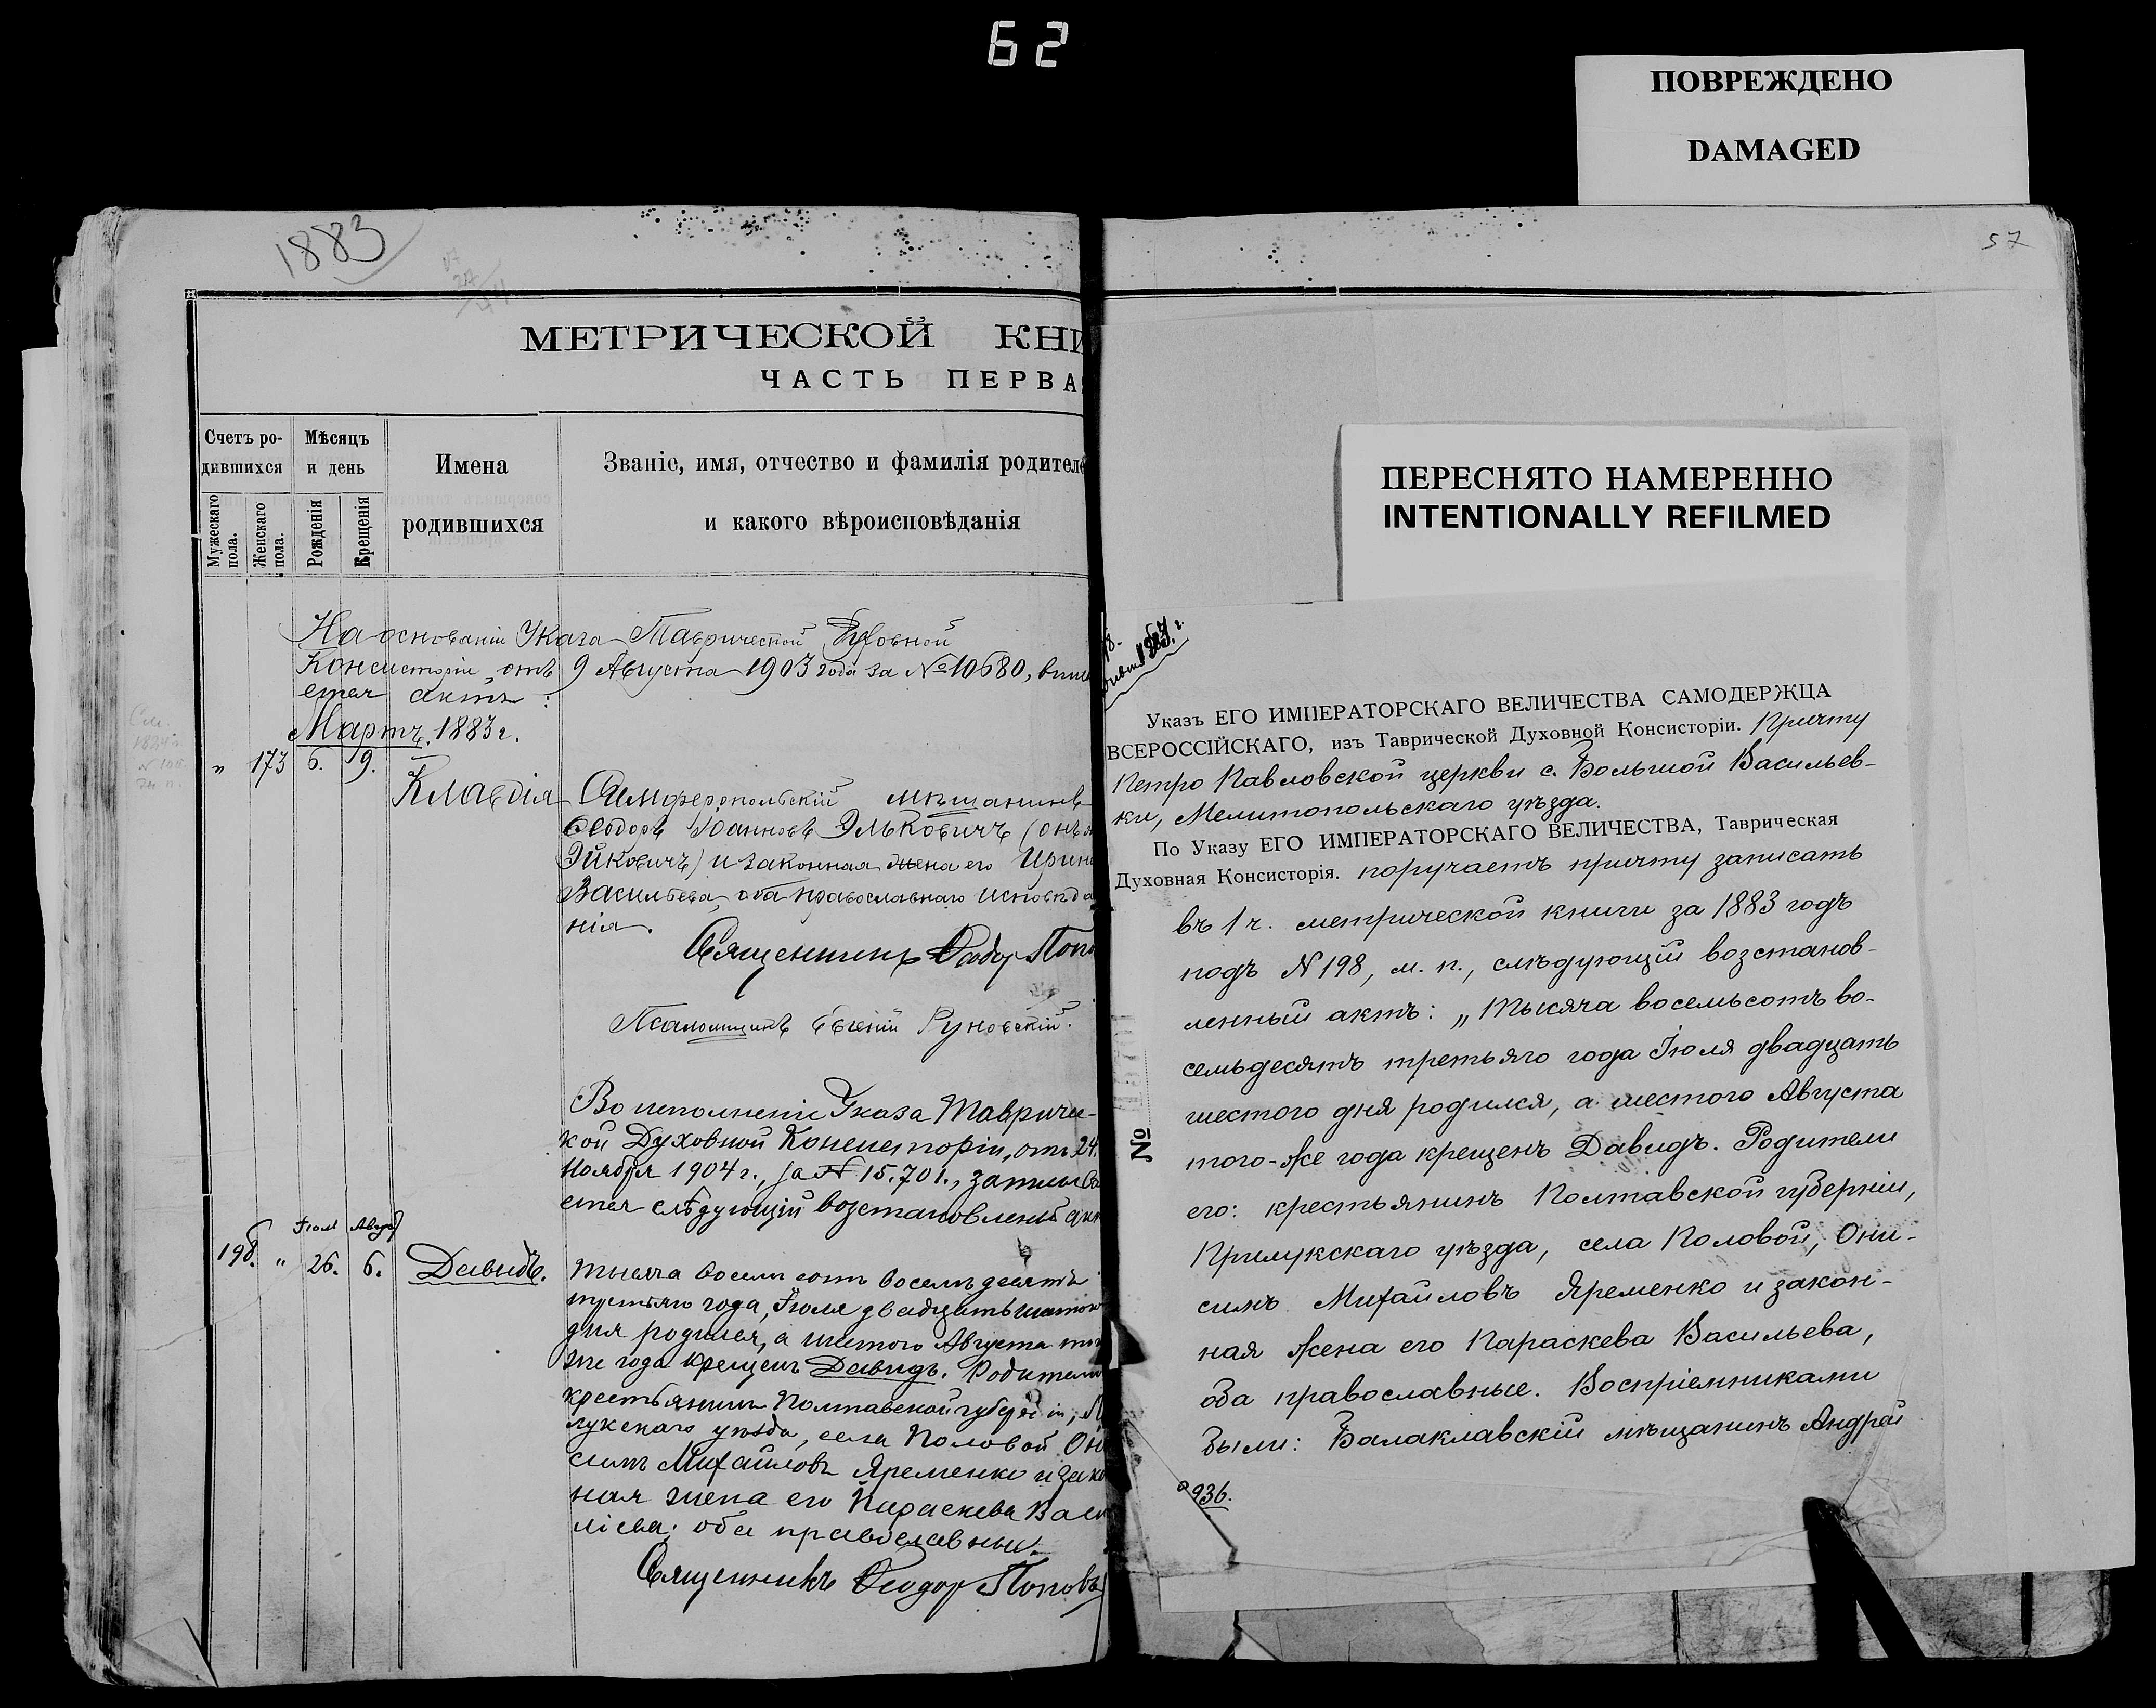 62
ПОВРЕЖДЕНО
DAMAGED
1883
МЕТРИЧЕСКОЙ КНИ
ЧАСТЬ ПЕРВА
Счетъ ро-
дившихся
Мѣсяцъ
и день
Имена
родившихся
Званіе, имя, отчество и фамилія родителе
и какого вѣроисповѣданія
Мужескаго пола.
Женскаго пола.
Рожденія
Крещенія
На основаніи Указа Таврической Духовной
Консисторіи, отъ 9 Августа 1903 года за № 10680, впис
ется актъ:
Мартъ. 1883 г.
" 173 6. 9.
Клавдія Симферопольскій мѣщанинъ
Ѳеодоръ Іоанновъ Эльковичъ (онъ ж
Эйковичъ) и законная жена его Ирина
Васильева, оба православнаго исповѣда
нія.
Священникъ Ѳеодор Попо
Псаломщикъ Евгеній Руновскій.
Во исполненіе Указа Тавриче-
кой Духовной Консисторіи, отъ 24.
Ноября 1904 г., за № 15.701., записыва
ется слѣдующій возстановленый акт
Іюл Авгус
198. " 26. 6. Давидъ. Тысяча восемь сотъ восемьдесятъ
третьяго года, Іюля двадцать шестого
дня родился, а шестого Августа того
же года крещенъ Давидъ. Родители
крестьянинъ Полтавской губерніи, П
лукскаго уѣзда, села Половой Он
симъ Михайловъ Яременко и зако
ная жена его Параскева Васи
ліева; оба православны.
Священникъ Ѳеодор Поповъ
57
ПЕРЕСНЯТО НАМЕРЕННО
INTENTIONALLY REFILMED
Указъ ЕГО ИМПЕРАТОРСКАГО ВЕЛИЧЕСТВА САМОДЕРЖЦА
ВСЕРОССІЙСКАГО, изъ Таврической Духовной Консисторіи. Причту
Петро Павловской церкви с. Большой Васильев-
ки, Мелитопольскаго уѣзда.
По Указу ЕГО ИМПЕРАТОРСКАГО ВЕЛИЧЕСТВА, Таврическая
Духовная Консисторія. поручаетъ причту записать
въ 1 ч. метрической книги за 1883 годъ
подъ N 198, м. п., слѣдующій возстанов-
ленный актъ: „Тысяча восемьсотъ во-
семьдесятъ третьяго года Іюля двадцать
шестого дня родился, а шестого Августа
того-же года крещенъ Давидъ. Родители
его: крестьянинъ Полтавской губерніи,
Прилукскаго уѣзда, села Половой, Они-
симъ Михайловъ Яременко и закон-
ная жена его Параскева Васильева,
оба православные. Воспріемниками
были: Балаклавскій мѣщанинъ Андрей
№
936.